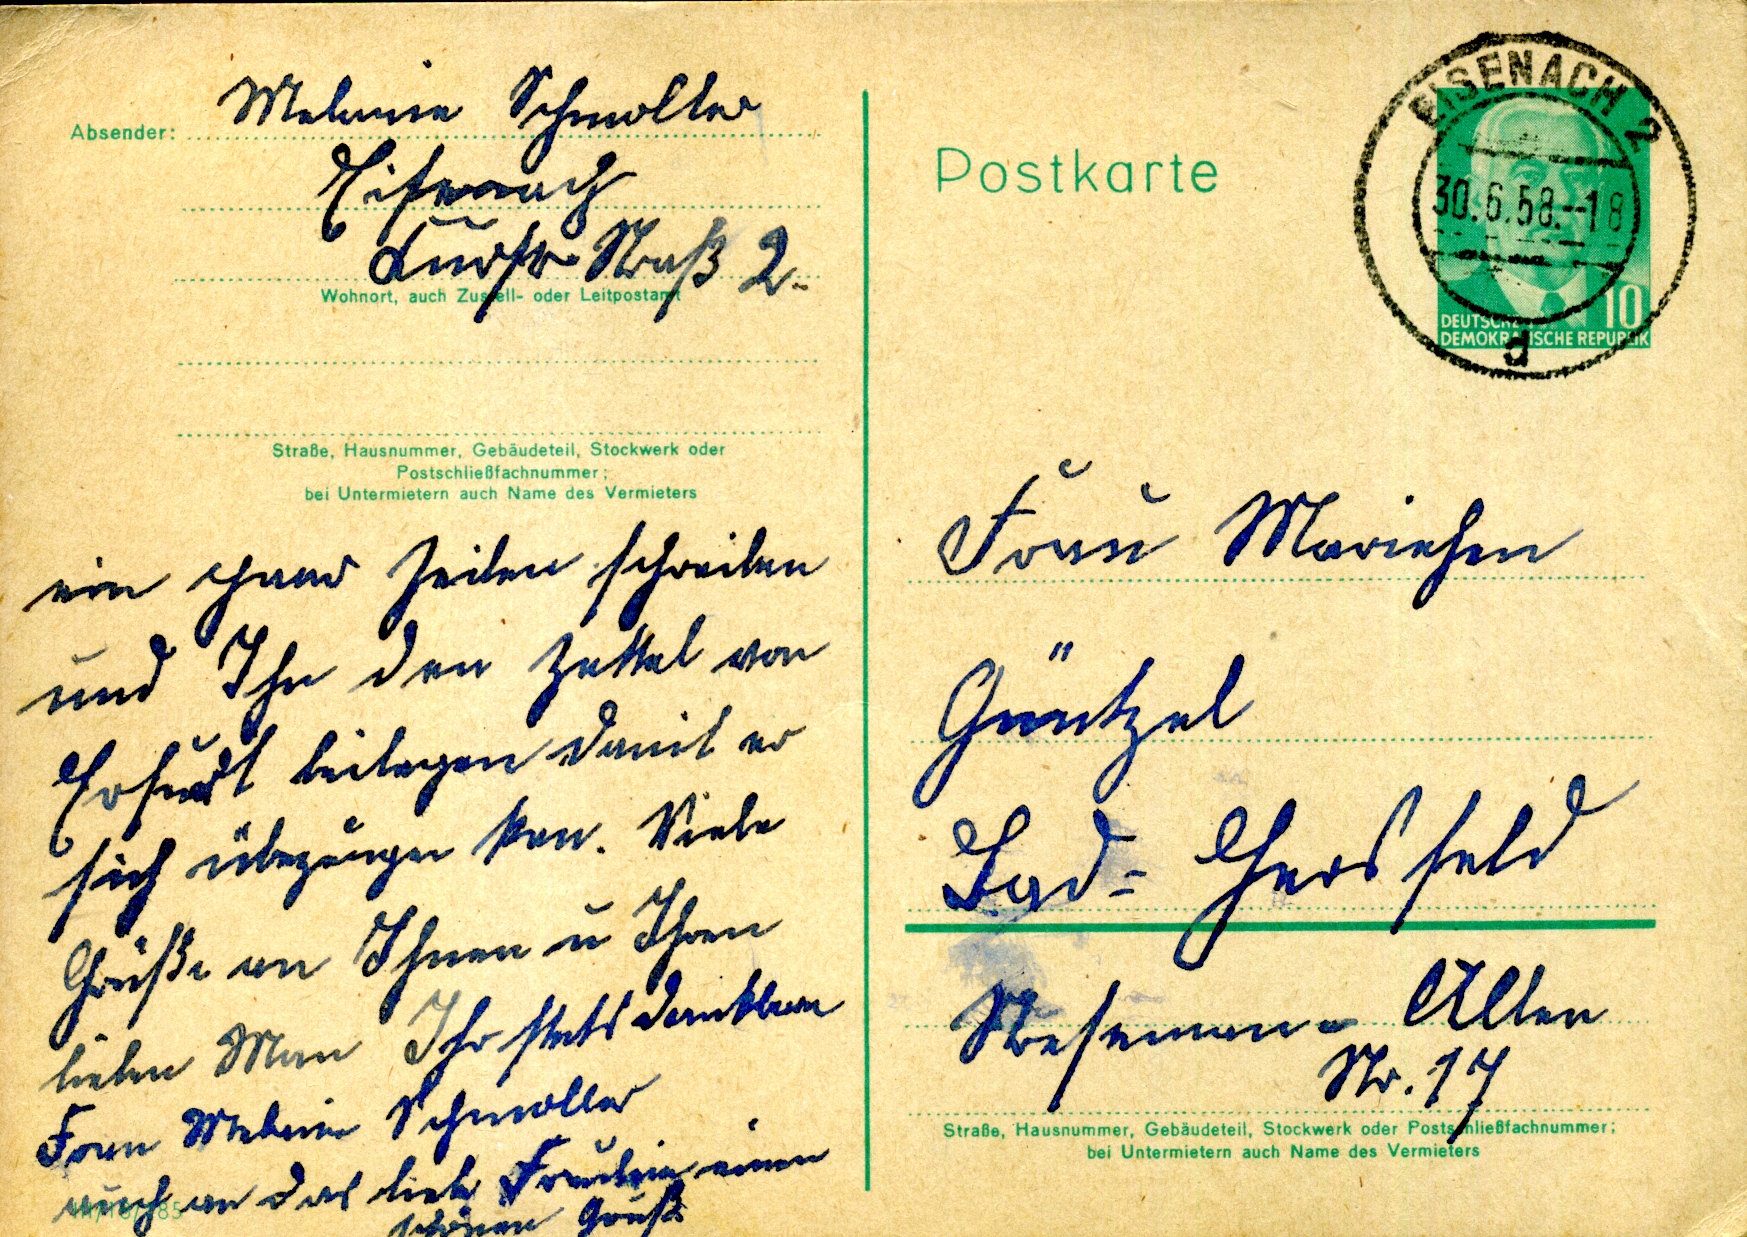 Absender: Melanie Schmoller
Eisenach
Straß 2.
Wohnort, auch Zustell- oder Leitpostamt
Straße, Hausnummer, Gebäudeteil, Stockwerk oder
Postschließfachnummer;
bei Untermietern auch Name des Vermieters
ein paar Zeilen schreiben
und Ihn den Zettel von
Erfurt beilegen damit er
sich überzeugen kan. Viele
Grüße an Ihnen u Ihren
lieben Man Ihr stets dankbare
Frau Melanie Schmoller
auch an das liebe Fräulein einen
schönen Gruß
Postkarte
EISENACH 2
30.6.58.-18
d
10
DEUTSCHE
DEMOKRATISCHE REPUBLIK
Frau Mariechen
Güntzel
Bad- Hersfeld
Stresemann- Allee
Nr. 17
Straße, Hausnummer, Gebäudeteil, Stockwerk oder Postschließfachnummer;
bei Untermietern auch Name des Vermieters